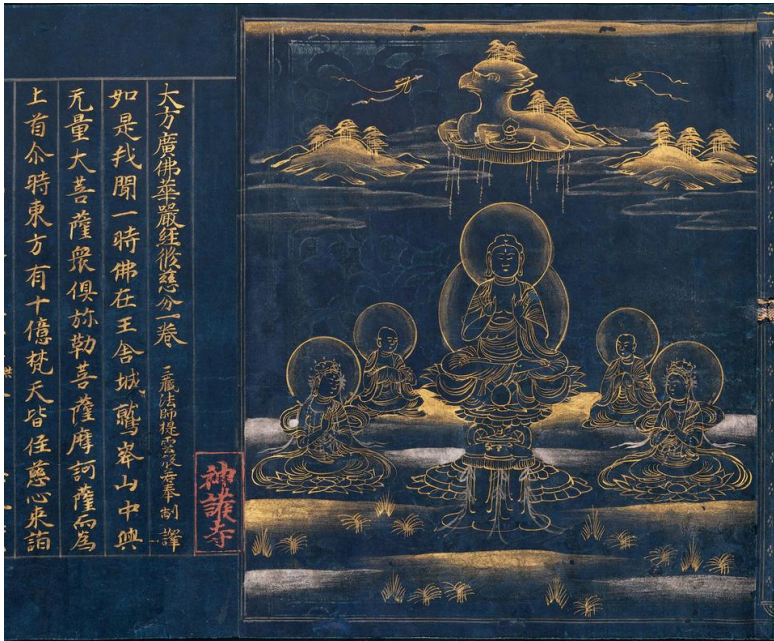 神護寺
大方廣佛華嚴經修慈分一卷 三藏法師提雲般若奉制譯
如是我聞一時佛在王舍城鷲峯山中與
无量大菩薩衆俱弥勒菩薩摩訶薩而為
上首尒時東方有十億梵天皆住慈心來詣